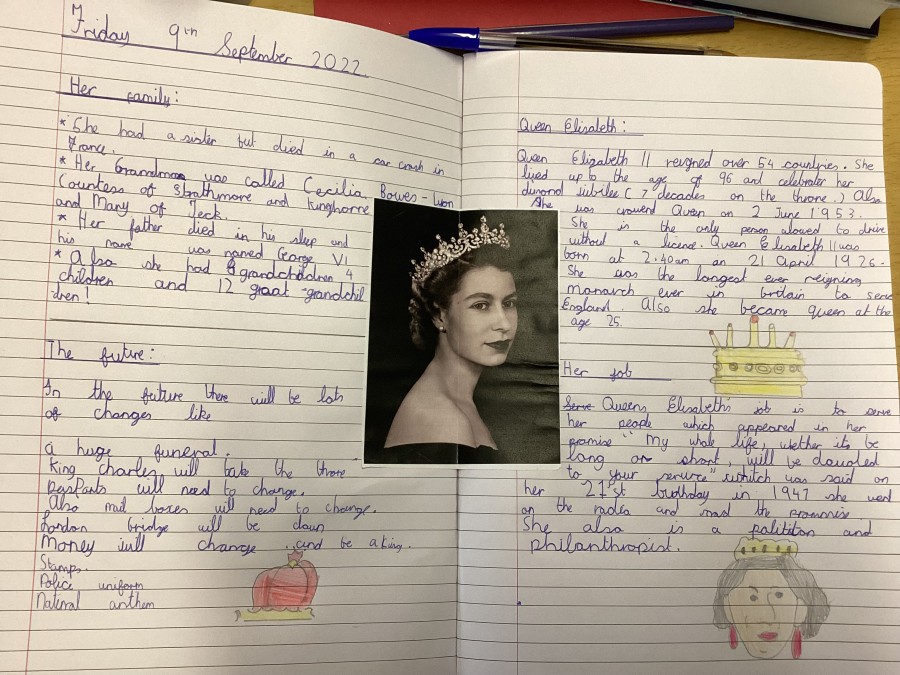 Friday 9th September 2022.
Her family:
* She had a sister but died in a car crash in
France.
* Her Grandmam was called Cecilia Bowes-Lyon
Countess of Strathmore and kunghorne
and Mary of Teck.
* Her father died in his sleep and
his name was named George VI
* Also she had 8 grandchildren 4
children and 12 great-grandchil
dren!
The future:
In the future there will be lots
of changes like
a huge funeral.
King charles will take the throne
Passports will need to change.
Also mail boxes will need to change.
London bridge will be down
Money will change ..and be a king.
Stamps.
Police uniform
National anthem
Queen Elizabeth:
Queen Elizabeth II reigned over 54 countries. She
lived up to the age of 96 and celebrater her
dimond jubilee (7 decades on the throne.) Also
She was crowend Queen on 2 June 1953.
She is the only person allowed to drive
without a licence. Queen Elizabeth II was
born at 2.40am on 21 April 1926.
She was the longest ever reigning
monarch ever in britain to serve
England Also she became queen at the
age 25.
Her job
Serve Queens Elizabeth's job is to serve
her people which appeared in her
promise "My whole life, wether its be
long or short, will be devoted
to your service" whitch was said on
her 21st birthday in 1947 she went
on the radio and read the promise
She also is a polititon and
philanthropist.